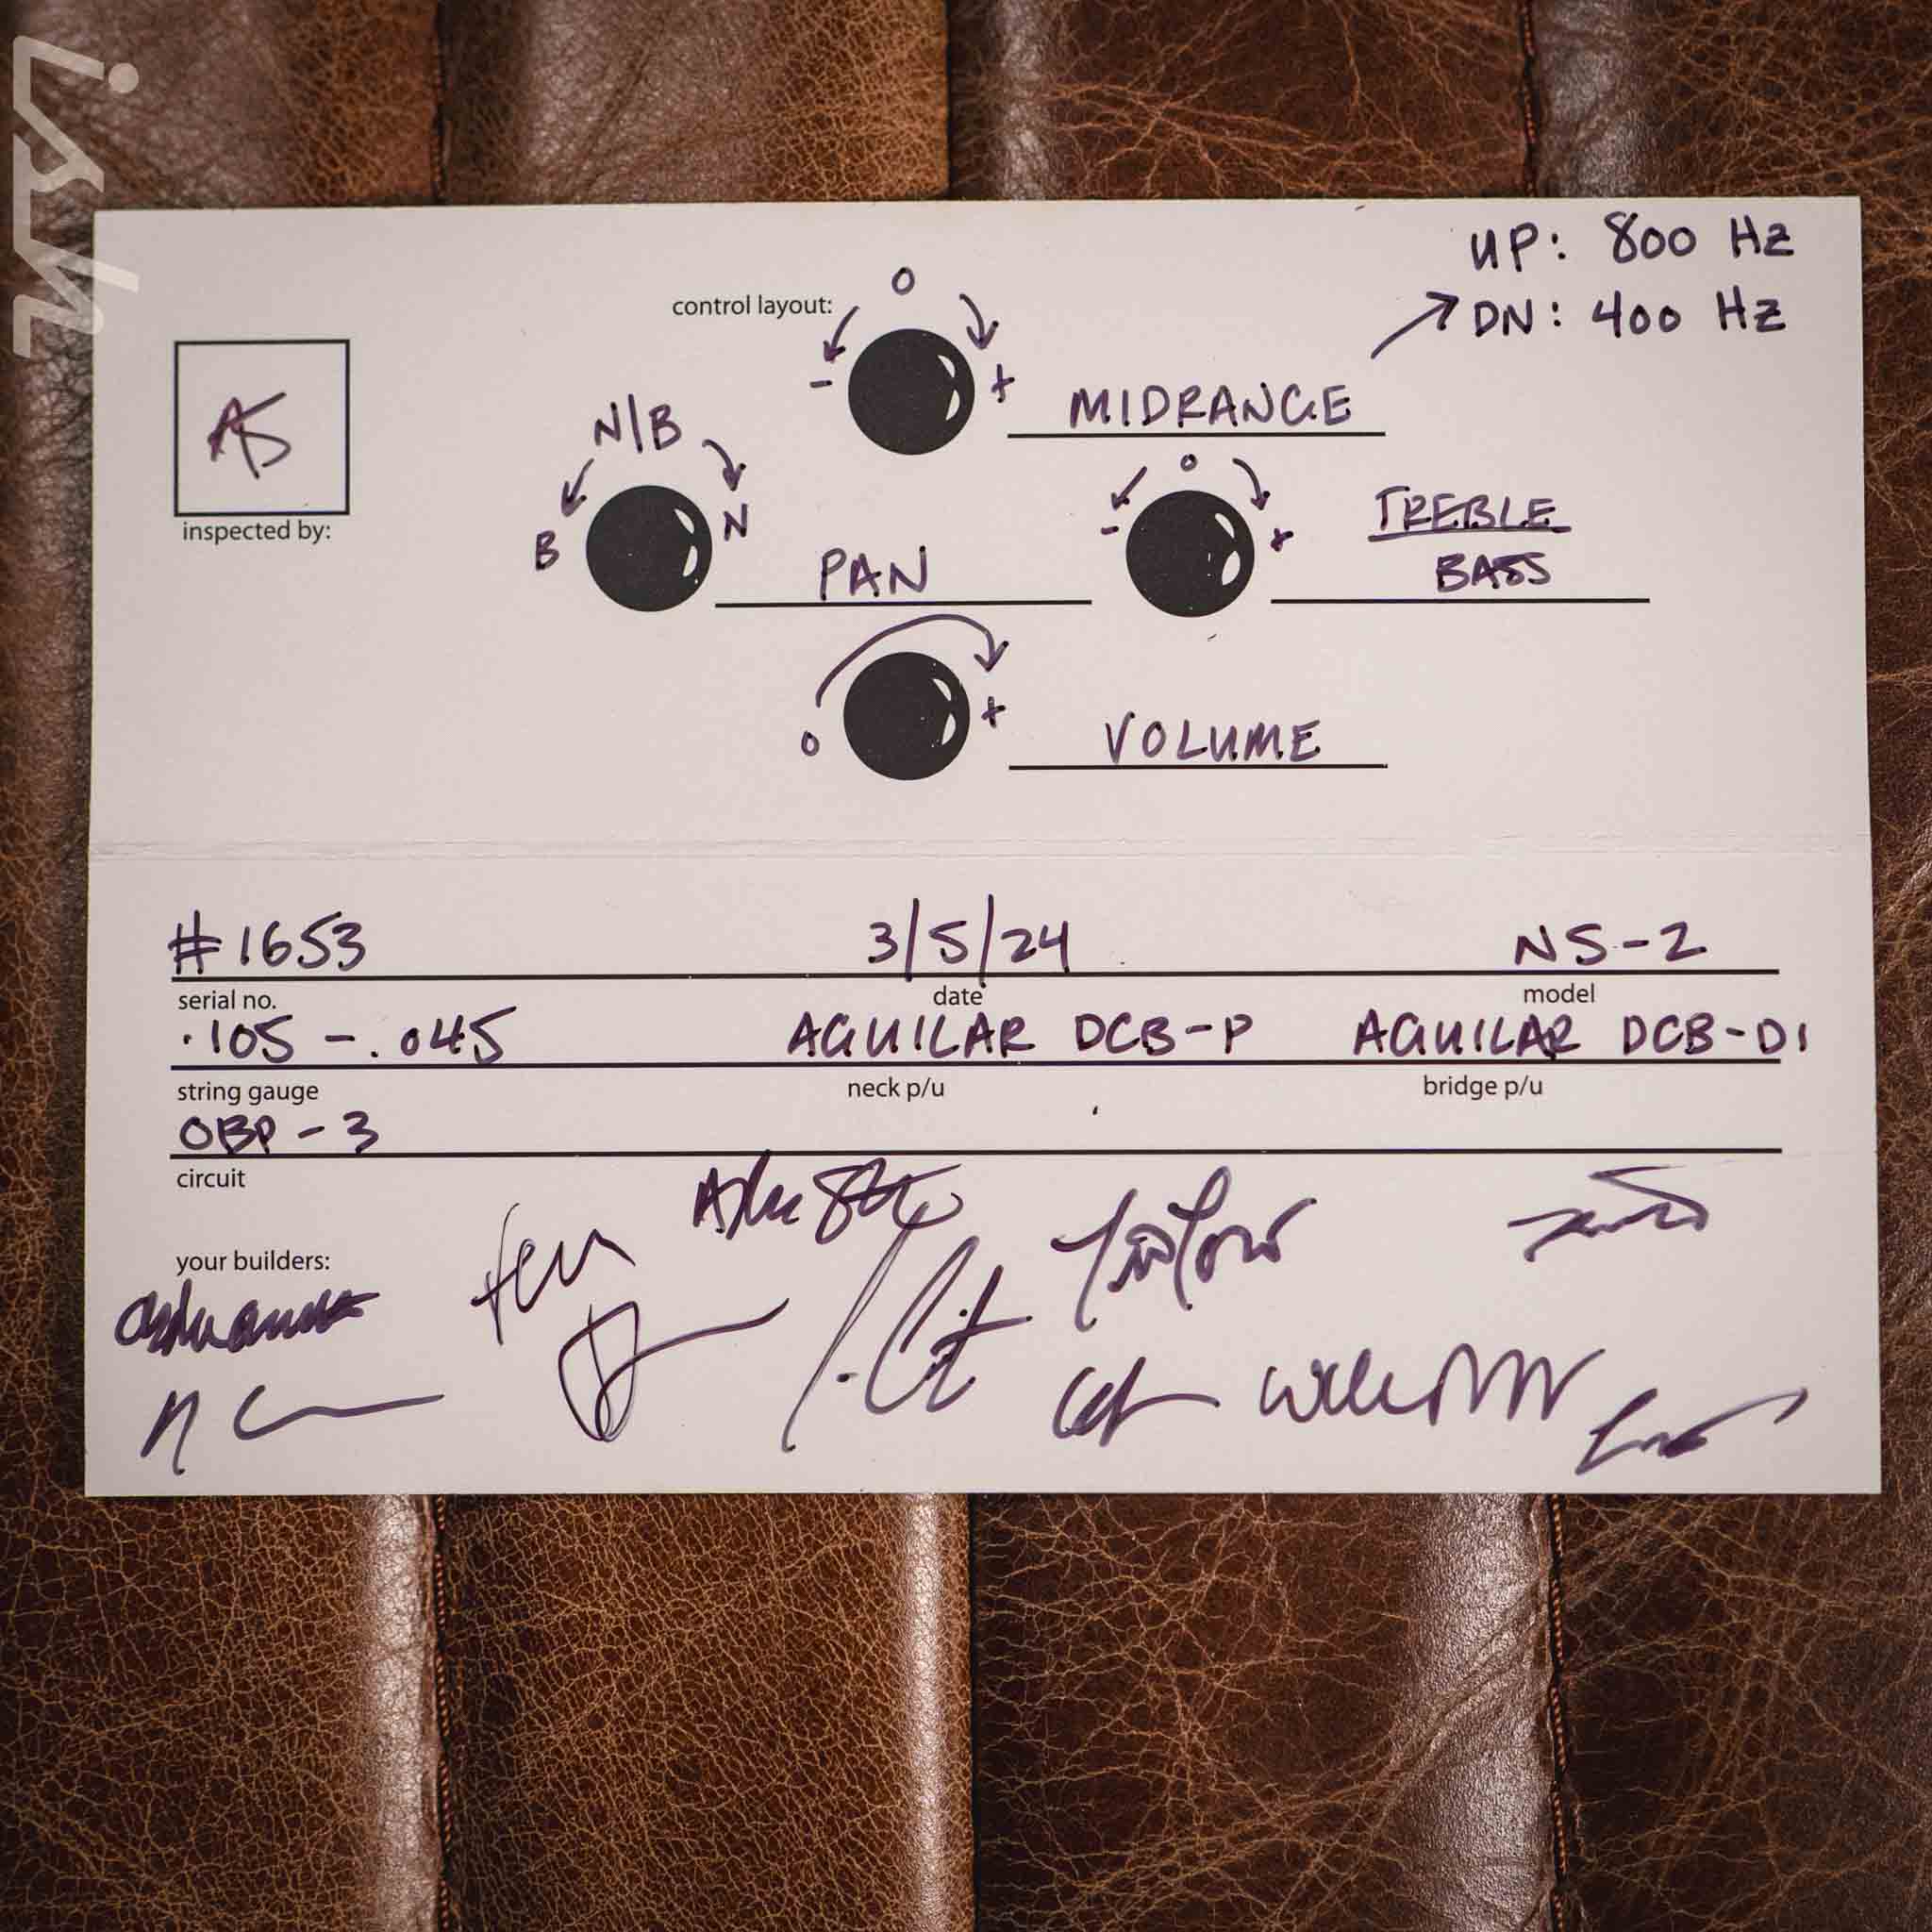 ish
UP: 800 Hz
DN: 400 Hz
control layout:
O
- +
MIDRANGE
AS
inspected by:
N/B
B N
PAN
O
- +
TREBLE
BASS
O +
VOLUME
#1653 3/5/24 NS-2
serial no. date model
.105 - .045 AGUILAR DCB-P AGUILAR DCB-D1
string gauge neck p/u bridge p/u
OBP-3
circuit
your builders: